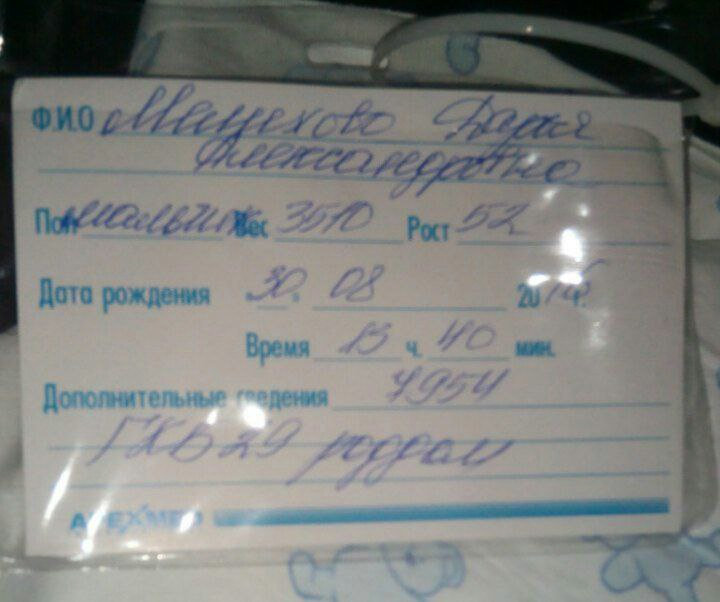 Ф.И.О Мещехова Дарья
Александровна
Пол мальчик Вес 3510 Рост 52
Дата рождения 30. 08 20 г.
Время 13 ч. 40 мин.
Дополнительные сведения 7954
ГКБ 29 роддом
APEXMED